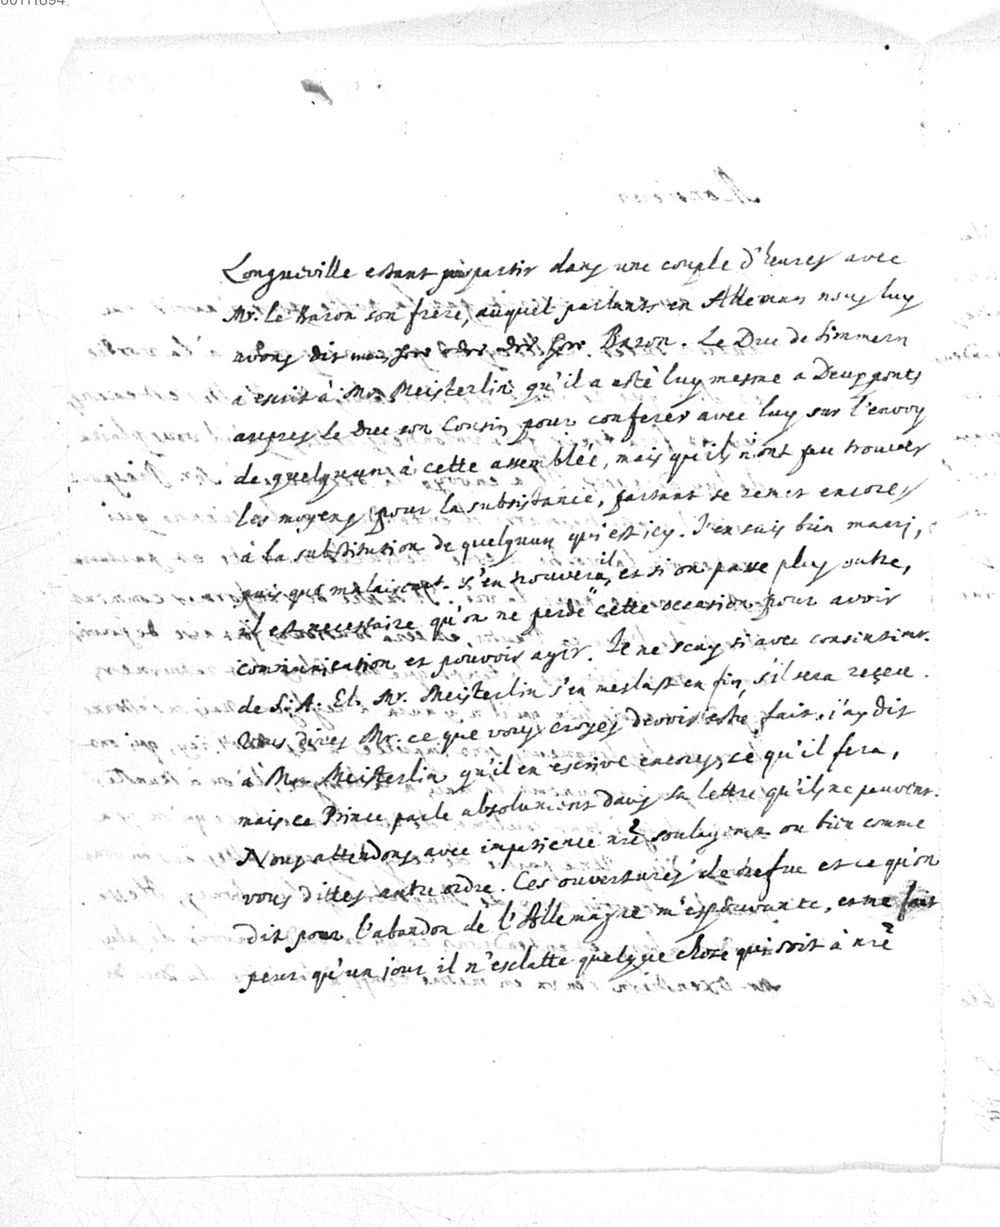 00111894
Longueville estant pour partir dans une couple d'heures avec
Mr. le Baron son frere, auquel parlants en Alleman nous luy
avons dit mein herr oder der herr Baron. Le Duc de Simmern
a escrit à Mr. Meisterlin qu'il a esté luy mesme a Deuxponts
aupres le Duc son Cousin pour conferer avec luy sur l'envoy
de quelquun à cette assemblée, mais qu'ils n'ont peu trouver
les moyens pour la subsistance, partant se remet encores
à la substitution de quelquun qui est icy. J'en suis bien marri,
puis que malaisement s'en trouvera il, et si on passe plus outre,
il est necessaire qu'on ne perde cette occasion pour avoir
communication et pouvoir agir. Je ne scay si avec consentimt.
de S. A. El. Mr. Meisterlin s'en meslast en fin, s'il sera receu.
Vous direz Mr. ce que vous croyez devoir estre fait, j'ay dit
à Mr. Meisterlin qu'il en escrive encores, ce qu'il fera,
mais ce Prince parle absolument dans sa lettre qu'ils ne peuvent.
Nous attendons avec impatience nrẽ soulagemt ou bien comme
vous dittes autre ordre. Ces ouvertures de refus et ce qu'on
dit pour l'abandon de l'Allemagne m'espouvante, et me fait
peur qu'un jour il n'esclatte quelque chose qui soit à nrẽ